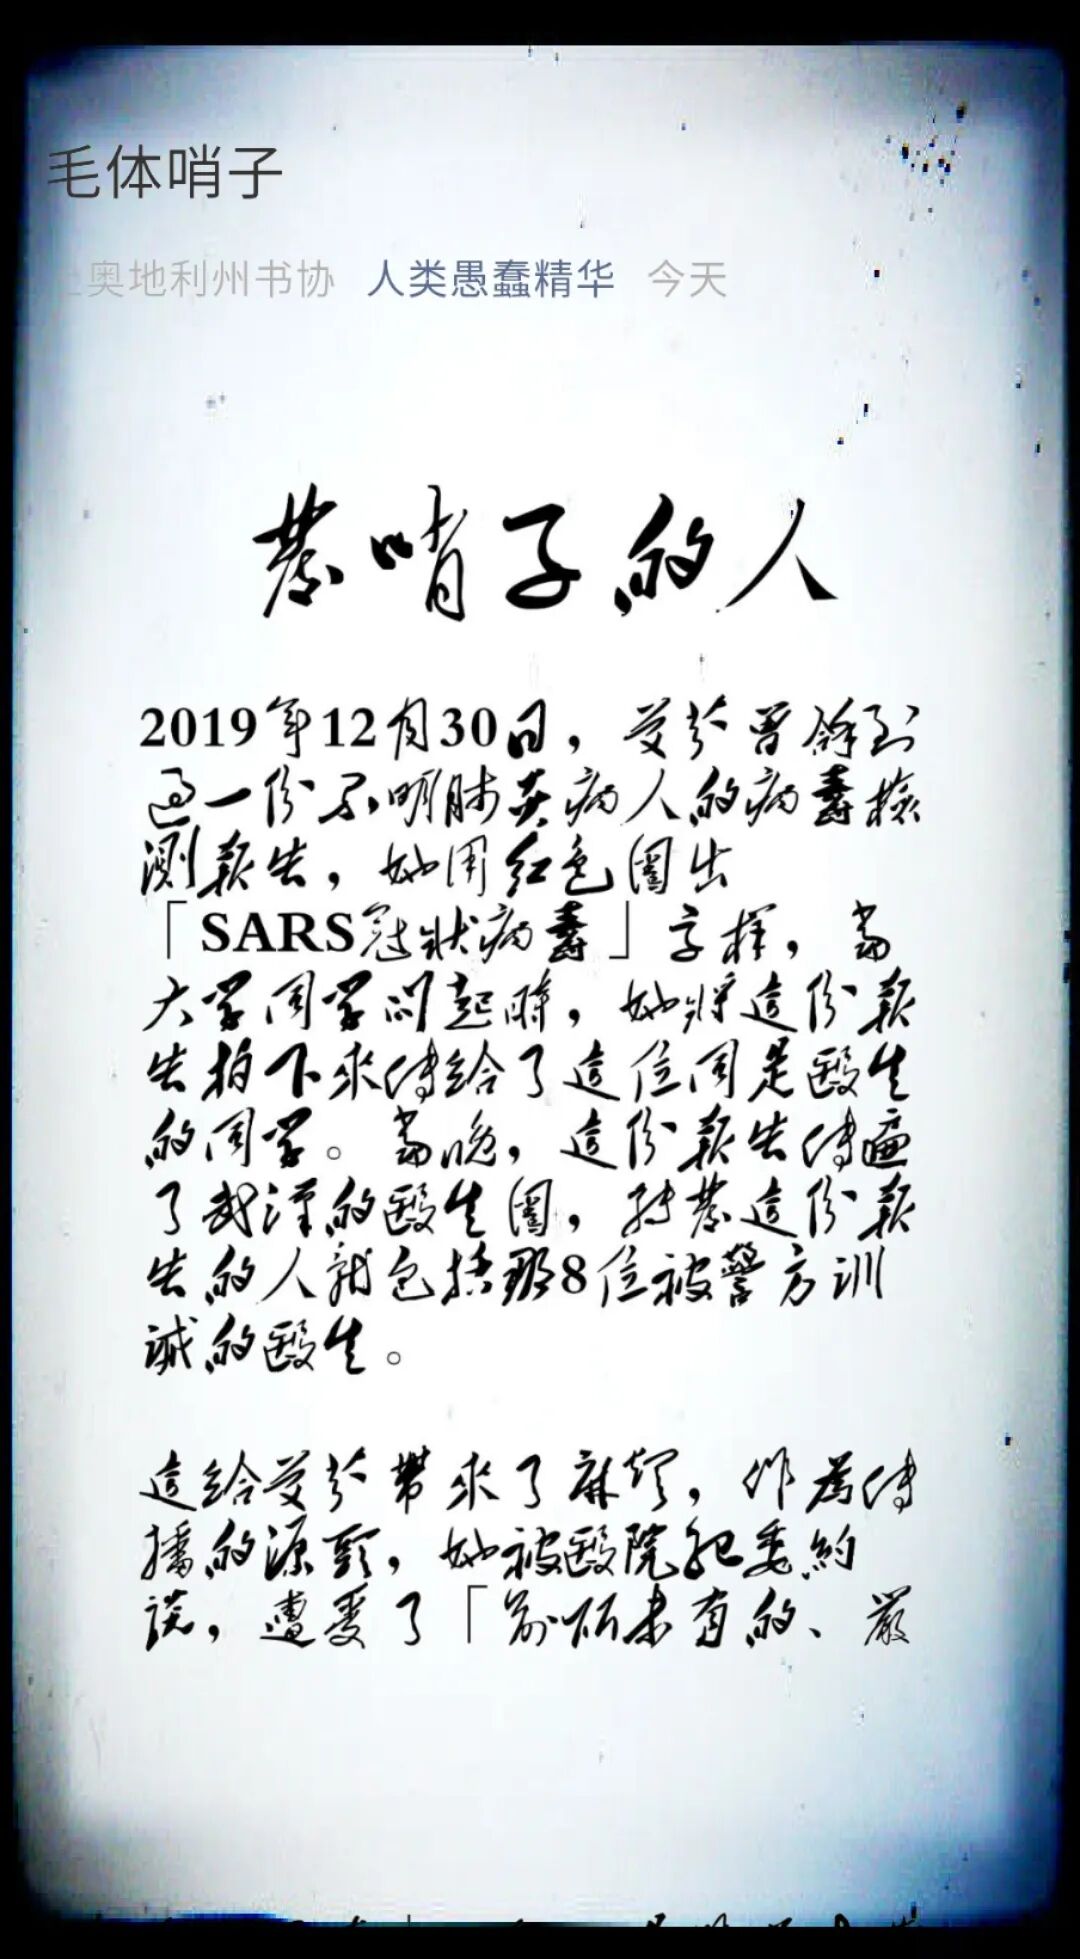 毛体哨子
奥地利州书协 人类愚蠢精华 今天
發哨子的人
2019年12月30日，艾芬曾拿到
過一份不明肺炎病人的病毒檢
測報告，她用紅色圈出
「SARS冠狀病毒」字樣，當
大學同學問起時，她將這份報
告拍下來傳給了這位同是醫生
的同學。當晚，這份報告傳遍
了武漢的醫生圈，轉發這份報
告的人就包括那8位被警方訓
誡的醫生。
這給艾芬帶來了麻煩，作為傳
播的源頭，她被醫院紀委約
談，遭受了「前所未有的、嚴